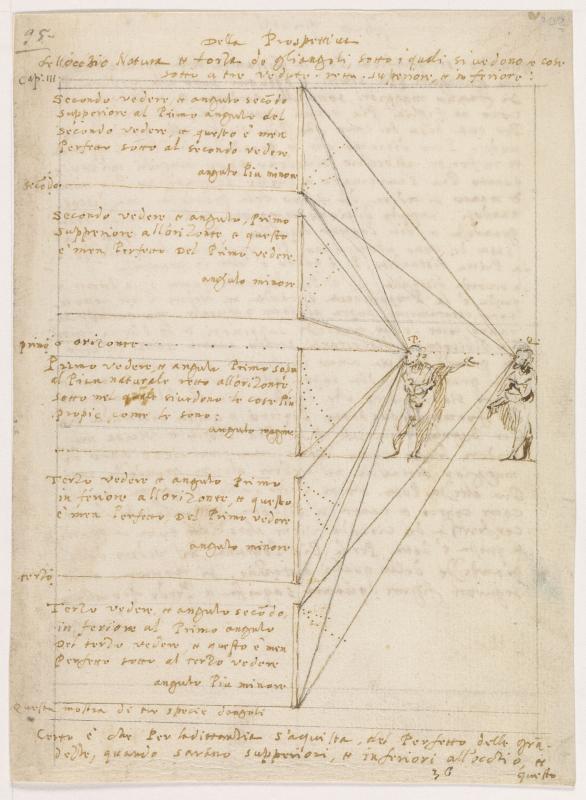 95
Della Prospettiva
Dell'occhio Natura et forza de gli angoli sotto i quali si vedono e cose
Cap. III
sotto a tre vedute. retta. superiore, et inferiore:
Secondo vedere, et angulo secōdo
supperiore al Primo angulo del
secondo vedere, et questo è men
Perfetto sotto al secondo vedere
angulo Piu minore
secōdo
Secondo vedere et angulo, Primo
Supperiore all'orizonte, et questo
è men Perfetto Del Primo vedere.
angulo minore
primo o orizonte
P.
Primo vedere, et angulo Primo sopa
al Pian naturale retto all'orizonte
sotto nel quale si vedono le cose Piu
propie come le sono:
angulo magiore
Terzo vedere et angulo Primo
in feriore all'orizonte, et questo
è men Perfetto Del Primo vedere
angulo minore
terzo
Terzo vedere, et angulo secōdo,
in feriore al Primo angulo
Del terzo vedere, et questo è men
Perfetto sotto al terzo vedere
angulo Piu minore
Questa mostra di tre specie d'anguli
Certo è che Per la distantia s'aquista, del Perfetto delle gran
dezze, quando sarano supperiori, et inferiori all'ochio, et
36
questo